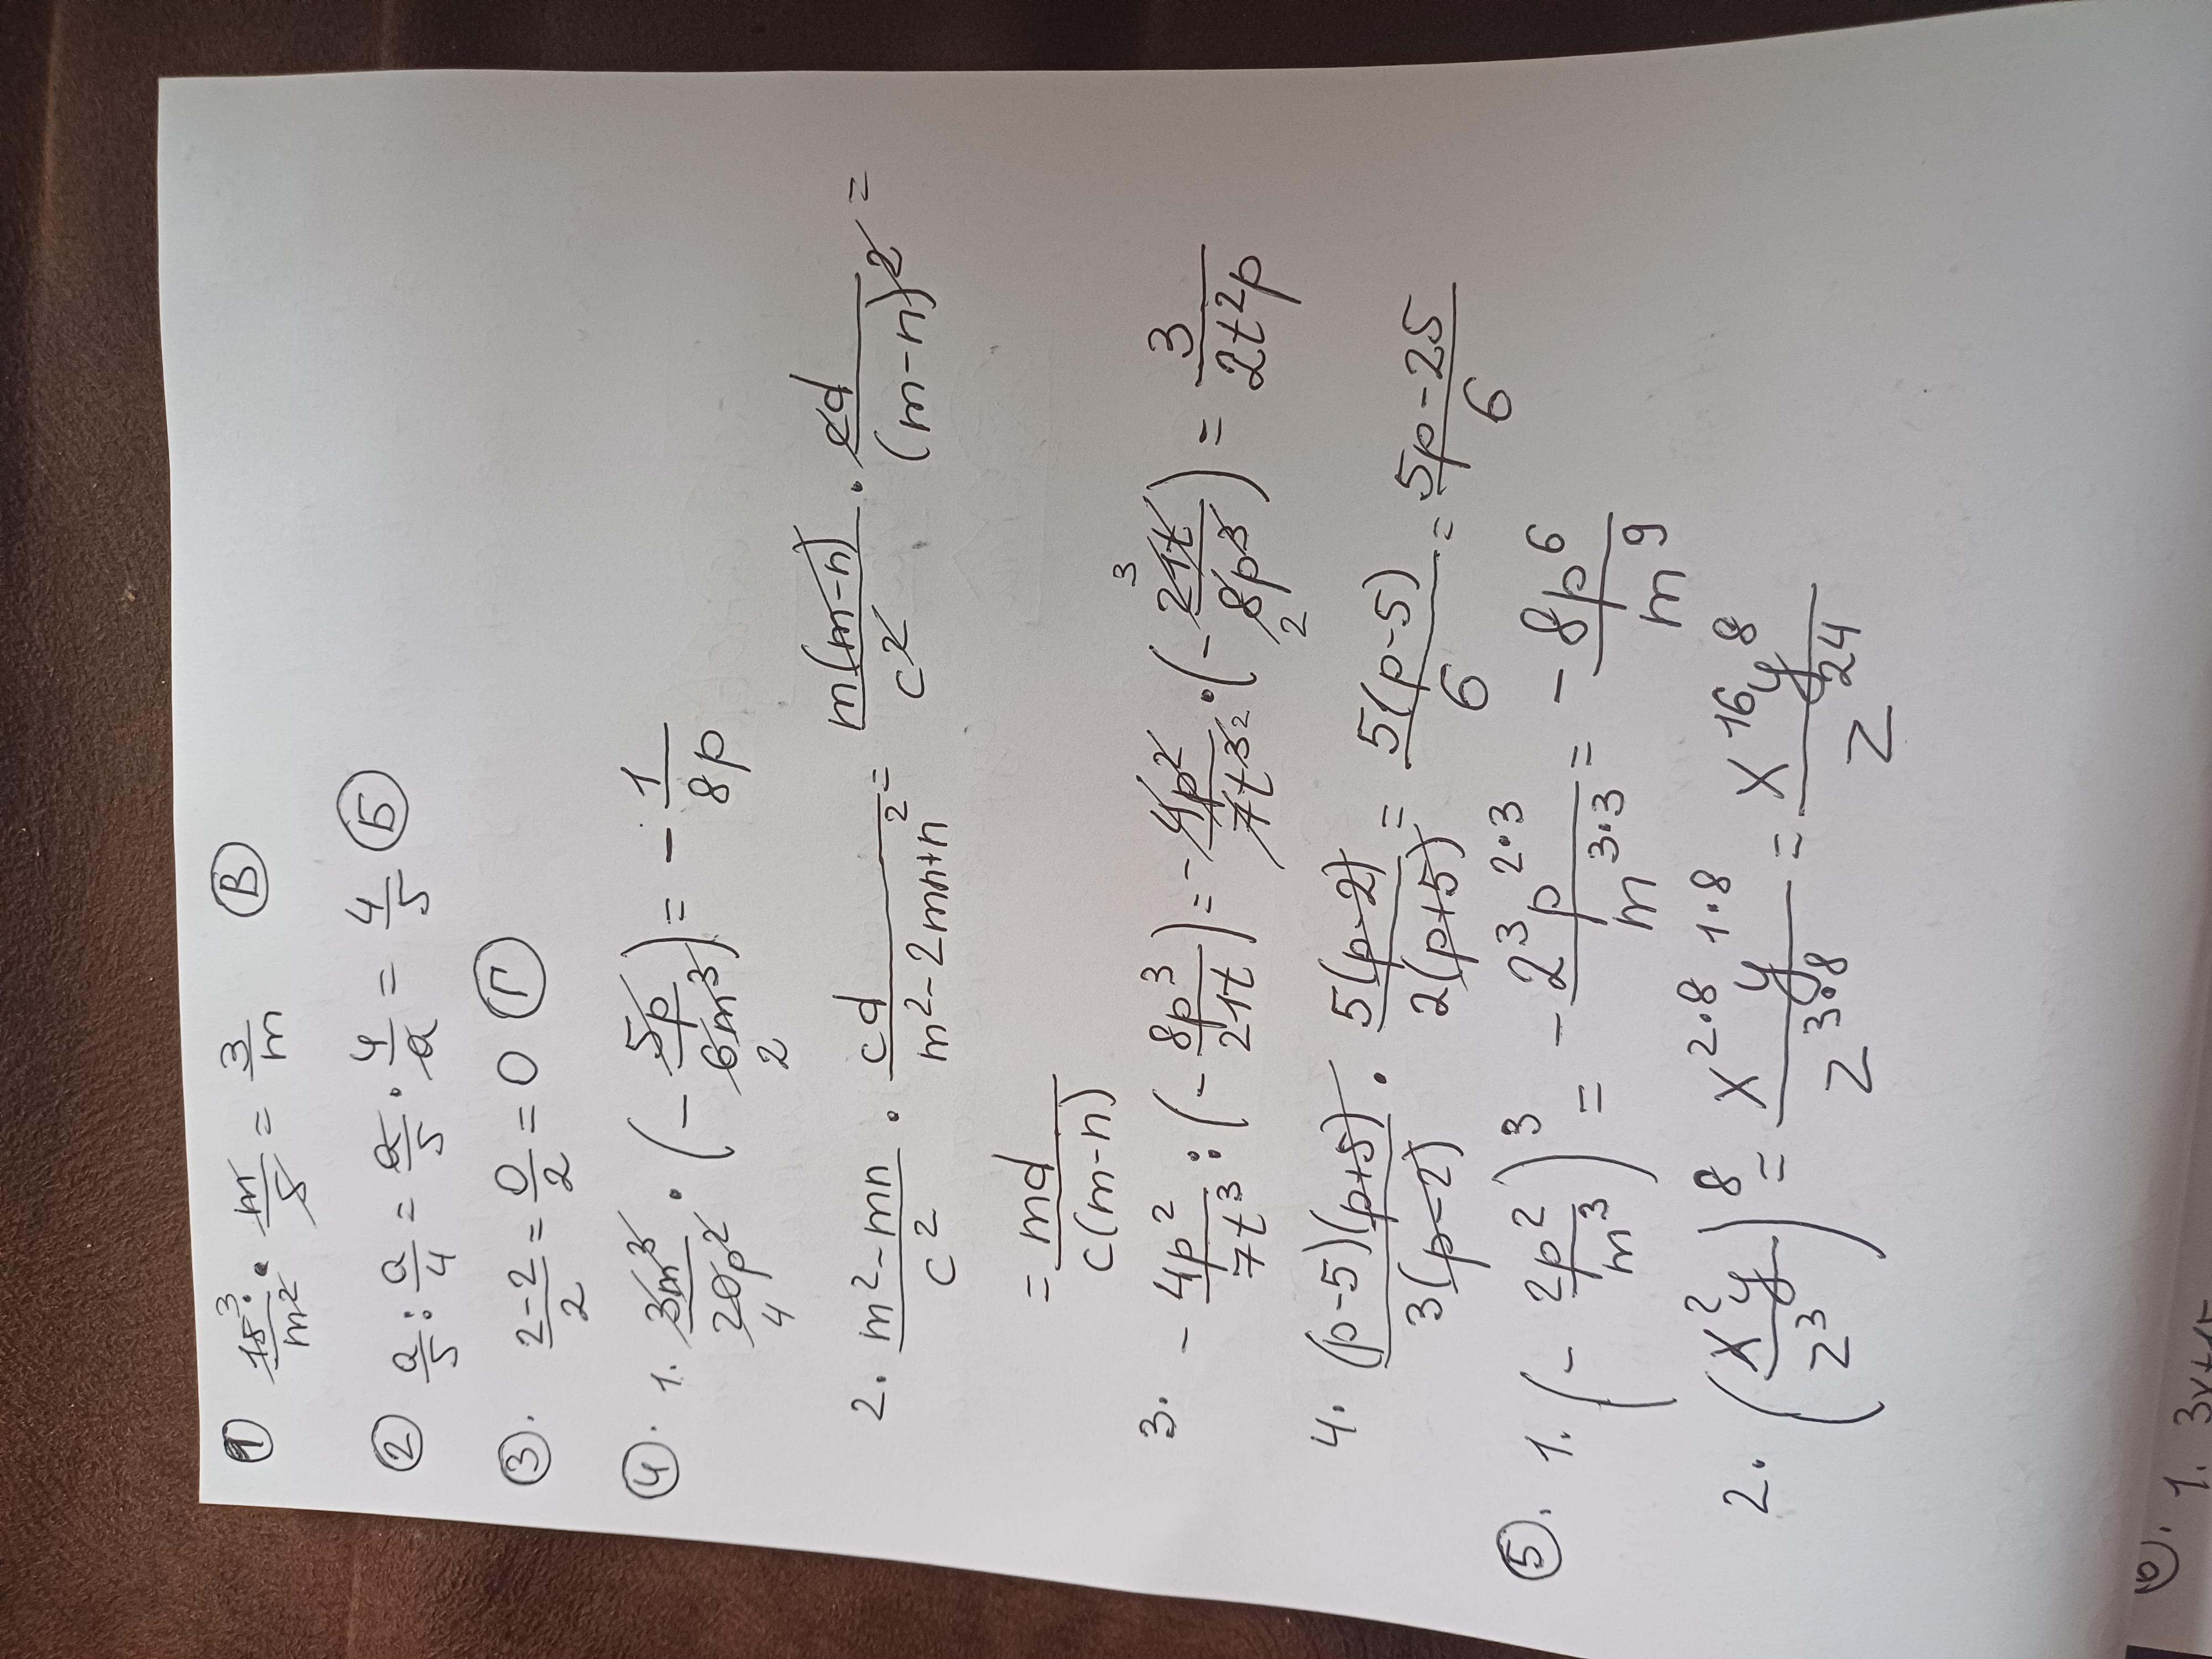 ① 15³/m² · m/5 = 3/m Ⓑ
② a/5 : a/4 = a/5 · 4/a = 4/5 Ⓑ
③. 2-2/2 = 0/2 = 0 Ⓖ
④. 1. 3m³/20p² 4 · (- 5p/6m³ 2) = - 1/8p
2. m²-mn/c² · cd/m²-2mn+n² = m(m-n)/c² · cd/(m-n)² =
= md/c(m-n)
3. - 4p²/7t³ : (- 8p³/21t) = - 4p²/7t³ ² · (- 21t ³/8p³ 2) = 3/2t²p
4. (p-5)(p+5)/3(p-2) · 5(p-2)/2(p+5) = 5(p-5)/6 = 5p-25/6
⑤. 1. (- 2p²/m³)³ = - 2³p²·³/m³·³ = - 8p⁶/m⁹
2. (x²y/z³)⁸ = x²·⁸y¹·⁸/z³·⁸ = x¹⁶y⁸/z²⁴
⑥. 1.